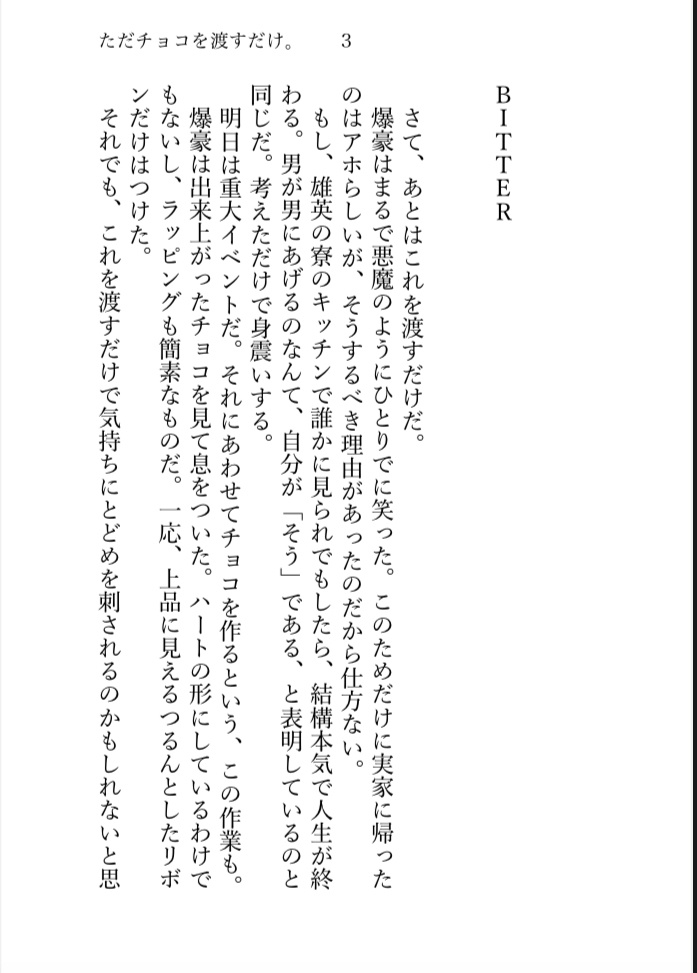 ただチョコを渡すだけ。 3
BITTER
さて、あとはこれを渡すだけだ。
爆豪はまるで悪魔のようにひとりでに笑った。このためだけに実家に帰った
のはアホらしいが、そうするべき理由があったのだから仕方ない。
もし、雄英の寮のキッチンで誰かに見られでもしたら、結構本気で人生が終
わる。男が男にあげるのなんて、自分が「そう」である、と表明しているのと
同じだ。考えただけで身震いする。
明日は重大イベントだ。それにあわせてチョコを作るという、この作業も。
爆豪は出来上がったチョコを見て息をついた。ハートの形にしているわけで
もないし、ラッピングも簡素なものだ。一応、上品に見えるつるんとしたリボ
ンだけはつけた。
それでも、これを渡すだけで気持ちにとどめを刺されるのかもしれないと思